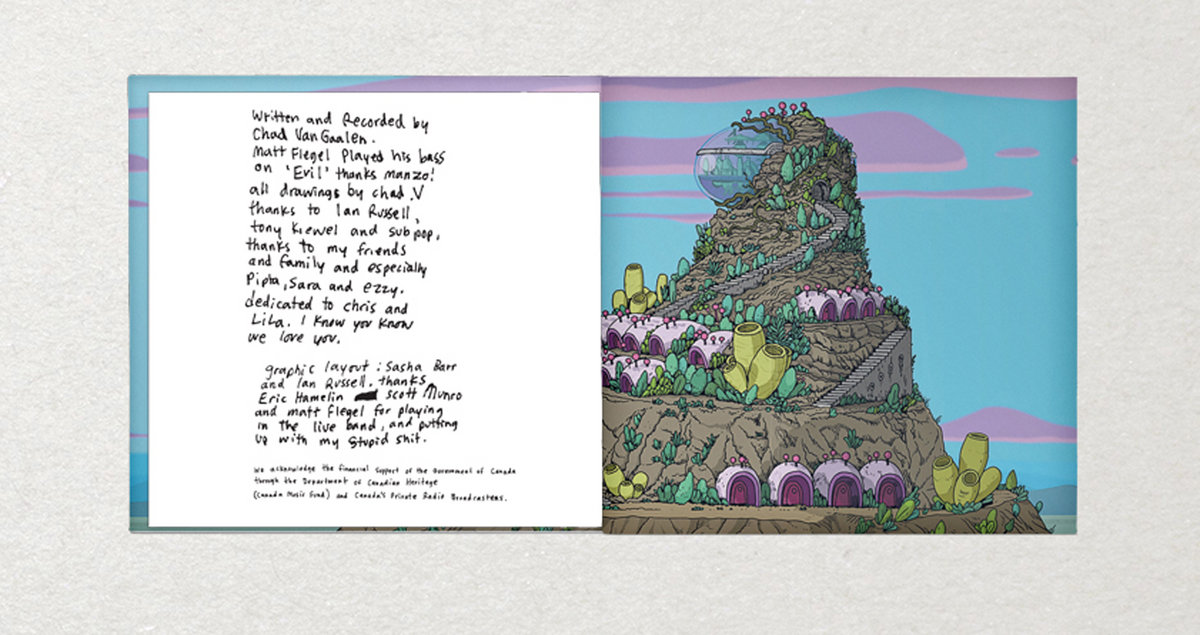 Written and Recorded by
Chad VanGaalen.
Matt Flegel Played his bass
on 'Evil' thanks manzo!
all drawings by chad.V
thanks to Ian Russell,
tony kiewel and sub pop,
thanks to my friends
and family and especially
Pipta, Sara and Ezzy.
dedicated to chris and
LiLa. I Know you Know
we love you.
graphic layout : Sasha Barr
and Ian Russell. thanks
Eric Hamelin scott Munro
and matt Flegel for playing
in the live band, and putting
up with my stupid shit.
We acknowledge the financial support of the Government of Canada
through the Department of Canadian Heritage
(Canada Music Fund) and Canada's Private Radio Broadcasters.